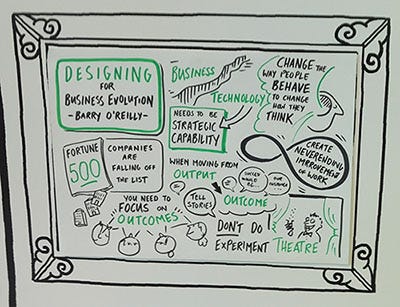 DESIGNING
FOR
BUSINESS EVOLUTION
-BARRY O'REILLY-
BUSINESS
TECHNOLOGY
NEEDS TO BE
STRATEGIC
CAPABILITY
CHANGE THE
WAY PEOPLE
BEHAVE
TO CHANGE
HOW THEY
THINK
FORTUNE
500
COMPANIES
ARE
FALLING OFF
THE LIST
CREATE
NEVERENDING
IMPROVEMENT
OF WORK
WHEN MOVING FROM
OUTPUT
OUTCOME
TELL
STORIES
YOU NEED TO
FOCUS ON
OUTCOMES
DON'T DO
EXPERIMENT
THEATRE